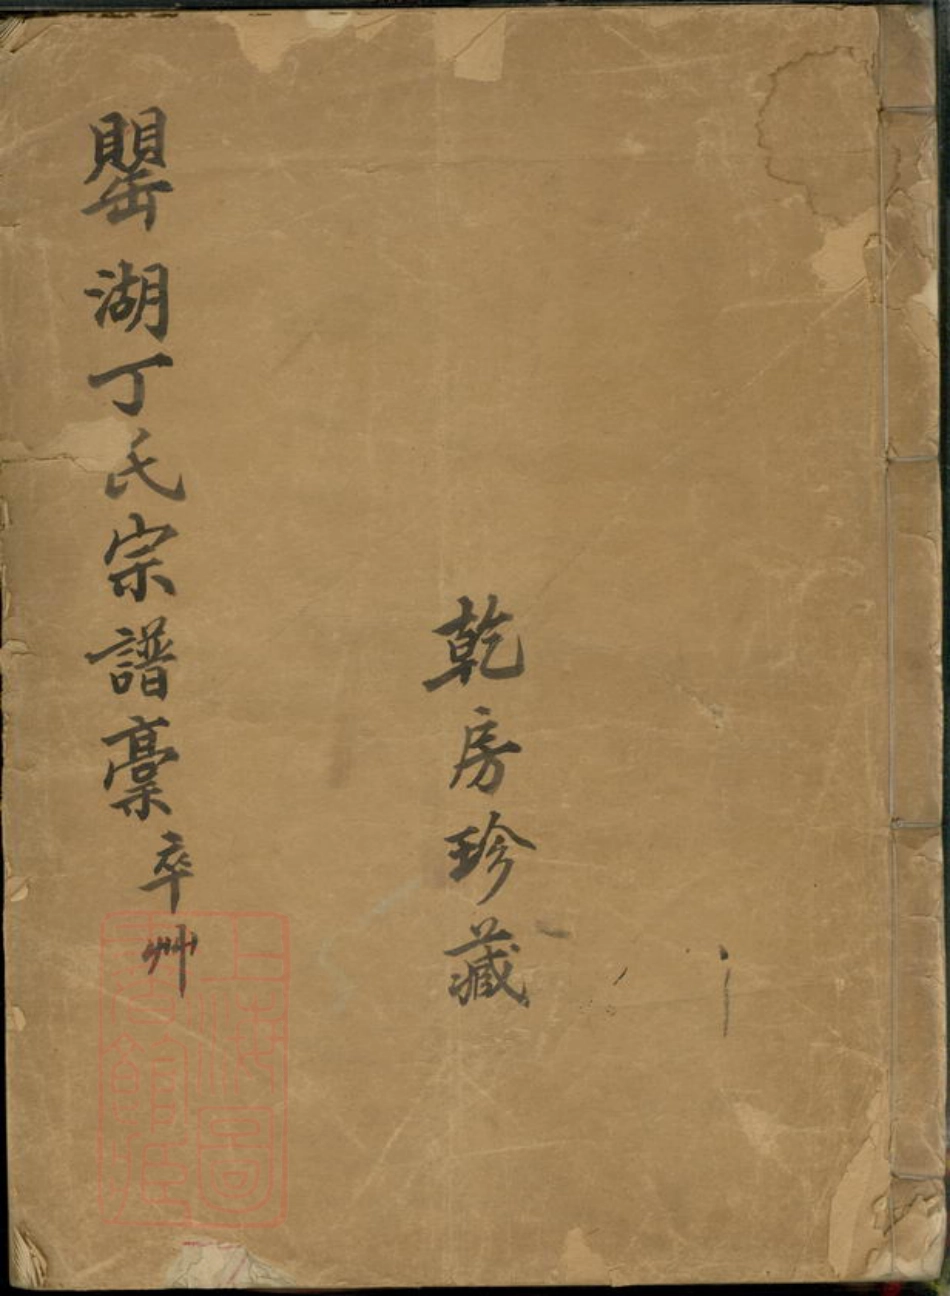 乾房珍藏
罌湖丁氏宗譜稾 卒艸
上海圖
書館藏